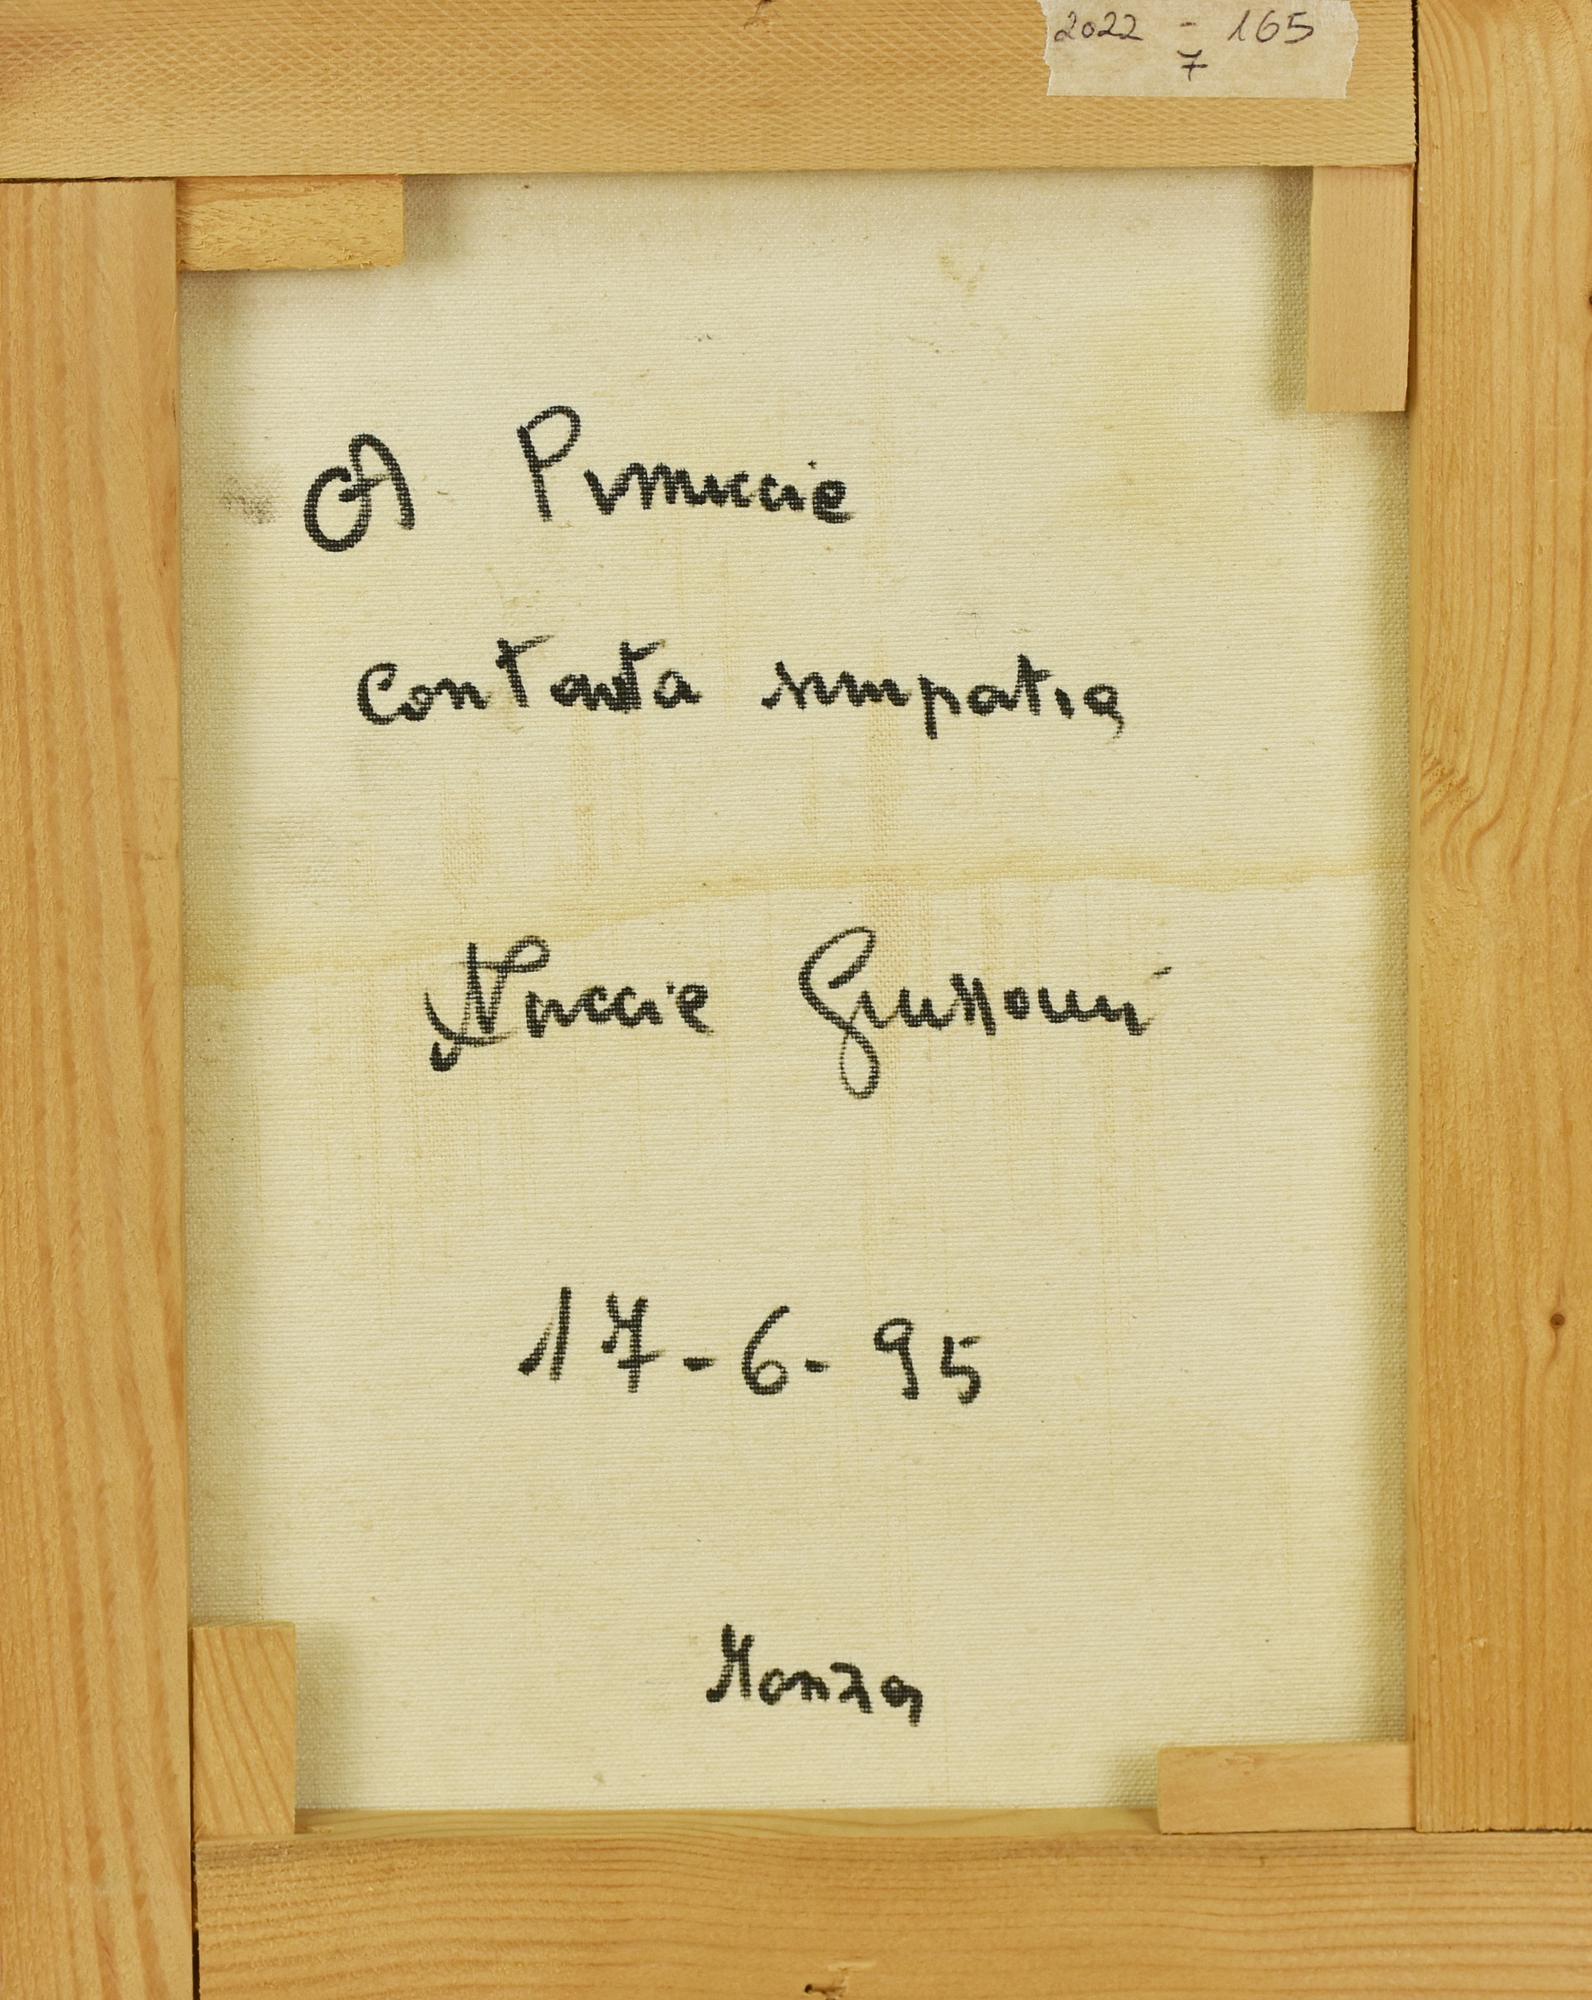 2022 - 165
7
A Pinuccie
Con tanta simpatia
Nuccie
17-6-95
Monza